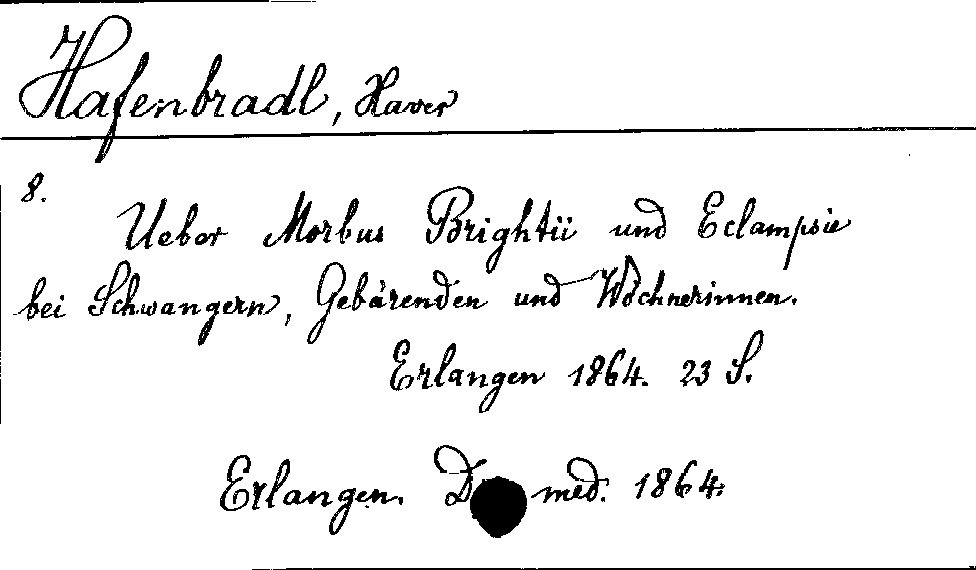 Hafenbradl, Xaver
8.
Ueber Morbus Brightii und Eclampsie
bei Schwangern, Gebärenden und Wöchnerinnen.
Erlangen 1864. 23 S.
Erlangen. D med. 1864.